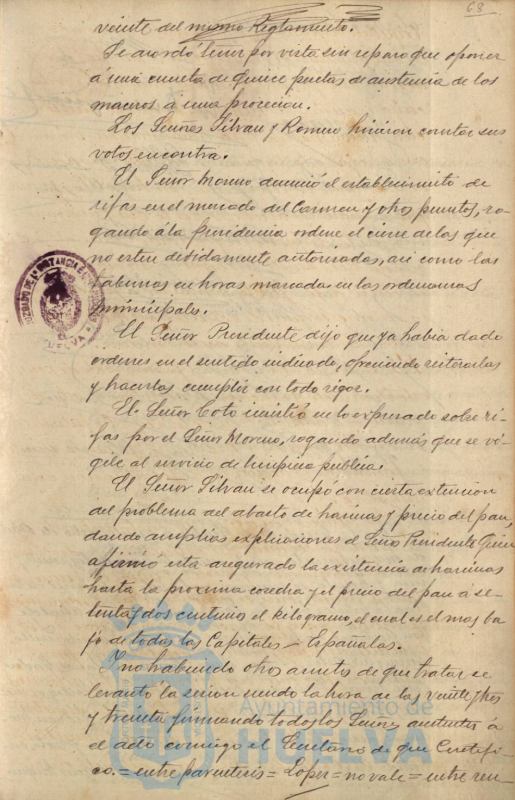 68
veinte del mismo Reglamento.
Se acordó tener por vista sin reparo que oponer
á una cuenta de quince pesetas de asistencia de los
maceros á una procesion.
Los Señores Silvan y Romeu hicieron constar sus
votos en contra.
El Señor Moreno denunció el establecimiento de
rifas en el mercado del Carmen y otros puntos, ro-
gando á la Presidencia ordene el cierre de las que
no esten debidamente autorizadas, asi como las
tabernas en horas marcadas en las ordenanzas
municipales.
El Señor Presidente dijo que ya habia dado
ordenes en el sentido indicado, ofreciendo reiterarlas
y hacerlas cumplir con todo rigor.
El Señor Coto insistió en lo expresado sobre ri-
fas por el Señor Moreno, rogando además que se vi-
gile al servicio de limpieza publica.
El Señor Silvan se ocupó con cierta extension
del problema del abasto de harinas y precio del pan,
dando amplias explicaciones el Señor Presidente quien
afirmó esta asegurado la existencia de harinas
hasta la proxima cosecha y el precio del pan a se-
tenta y dos centimos el kilogramo, el cual es el mas ba-
jo de todas las Capitales Españolas.
Y no habiendo otros asuntos de que tratar se
levantó la sesion siendo la hora de las veinte y tres
y treinta firmando todos los Señores asistentes á
el acto conmigo el Secretario de que Certifi-
co. = entre parentesis = Lopez = no vale = entre ren-
JUZGADO DE 1ª INSTANCIA
HUELVA
Ayuntamiento de
HUELVA